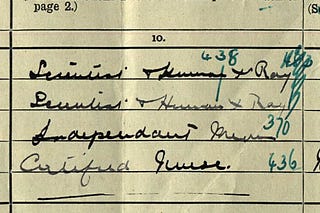 page 2.)
10.
438
Scientist & Human X Ray
Scientist & Human X Ray
Independant Means 370
Certified Nurse. 436